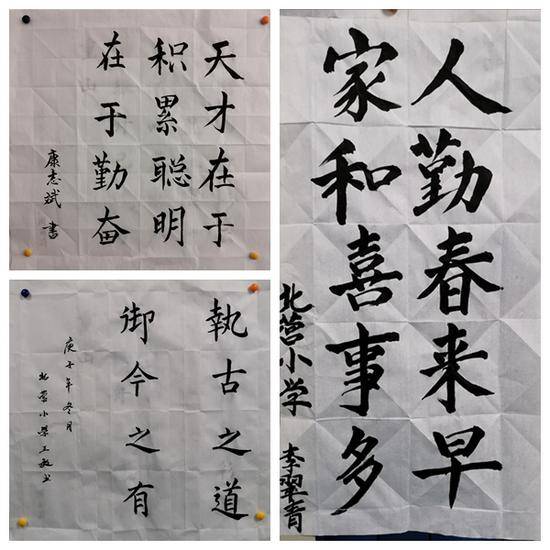 天才在于
积累聪明
在于勤奋
康志斌 书
執古之道
御今之有
庚子年冬月
北营小学王敏书
人勤春来早
家和喜事多
北营小学 李翠青